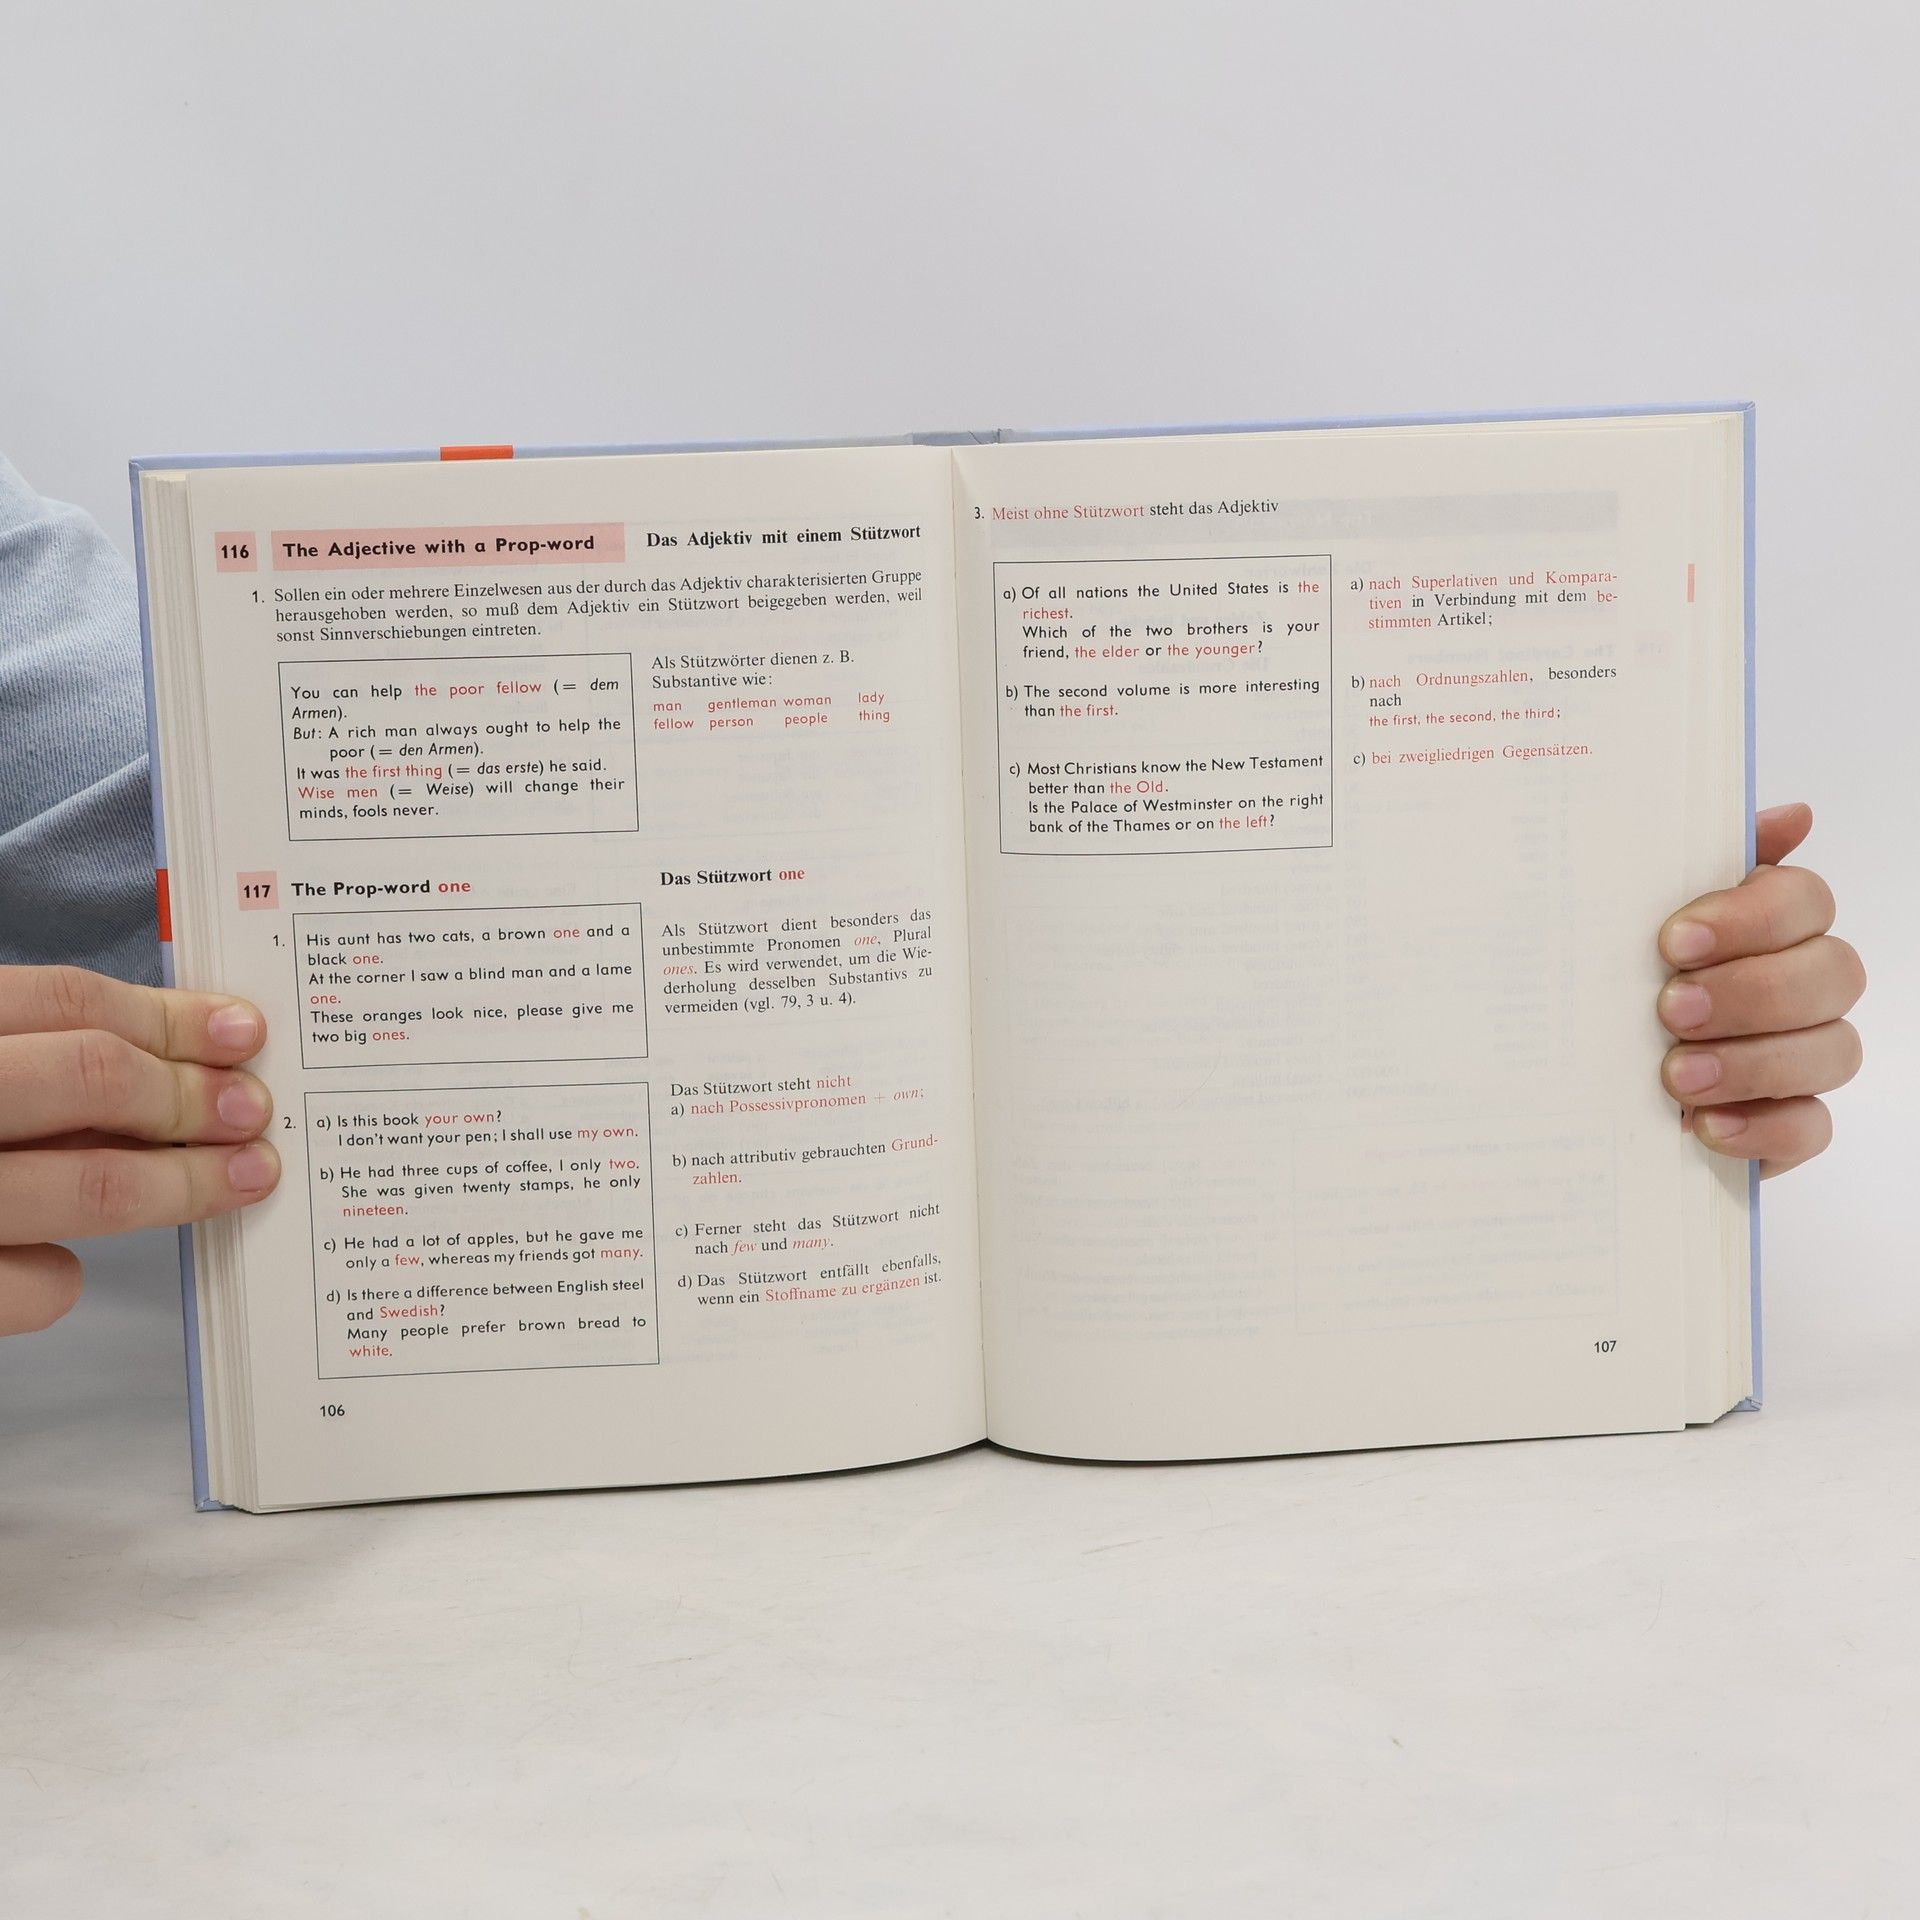 116 The Adjective with a Prop-word Das Adjektiv mit einem Stützwort
1. Sollen ein oder mehrere Einzelwesen aus der durch das Adjektiv charakterisierten Gruppe
herausgehoben werden, so muß dem Adjektiv ein Stützwort beigegeben werden, weil
sonst Sinnverschiebungen eintreten.
You can help the poor fellow (= dem
Armen).
But: A rich man always ought to help the
poor (= den Armen).
It was the first thing (= das erste) he said.
Wise men (= Weise) will change their
minds, fools never.
Als Stützwörter dienen z. B.
Substantive wie:
man gentleman woman lady
fellow person people thing
117 The Prop-word one Das Stützwort one
1. His aunt has two cats, a brown one and a
black one.
At the corner I saw a blind man and a lame
one.
These oranges look nice, please give me
two big ones.
Als Stützwort dient besonders das
unbestimmte Pronomen one, Plural
ones. Es wird verwendet, um die Wie-
derholung desselben Substantivs zu
vermeiden (vgl. 79, 3 u. 4).
2. a) Is this book your own?
I don't want your pen; I shall use my own.
b) He had three cups of coffee, I only two.
She was given twenty stamps, he only
nineteen.
c) He had a lot of apples, but he gave me
only a few, whereas my friends got many.
d) Is there a difference between English steel
and Swedish?
Many people prefer brown bread to
white.
Das Stützwort steht nicht
a) nach Possessivpronomen + own;
b) nach attributiv gebrauchten Grund-
zahlen.
c) Ferner steht das Stützwort nicht
nach few und many.
d) Das Stützwort entfällt ebenfalls,
wenn ein Stoffname zu ergänzen ist.
106
3. Meist ohne Stützwort steht das Adjektiv
a) Of all nations the United States is the
richest.
Which of the two brothers is your
friend, the elder or the younger?
b) The second volume is more interesting
than the first.
c) Most Christians know the New Testament
better than the Old.
Is the Palace of Westminster on the right
bank of the Thames or on the left?
a) nach Superlativen und Kompara-
tiven in Verbindung mit dem be-
stimmten Artikel;
b) nach Ordnungszahlen, besonders
nach
the first, the second, the third;
c) bei zweigliedrigen Gegensätzen.
107